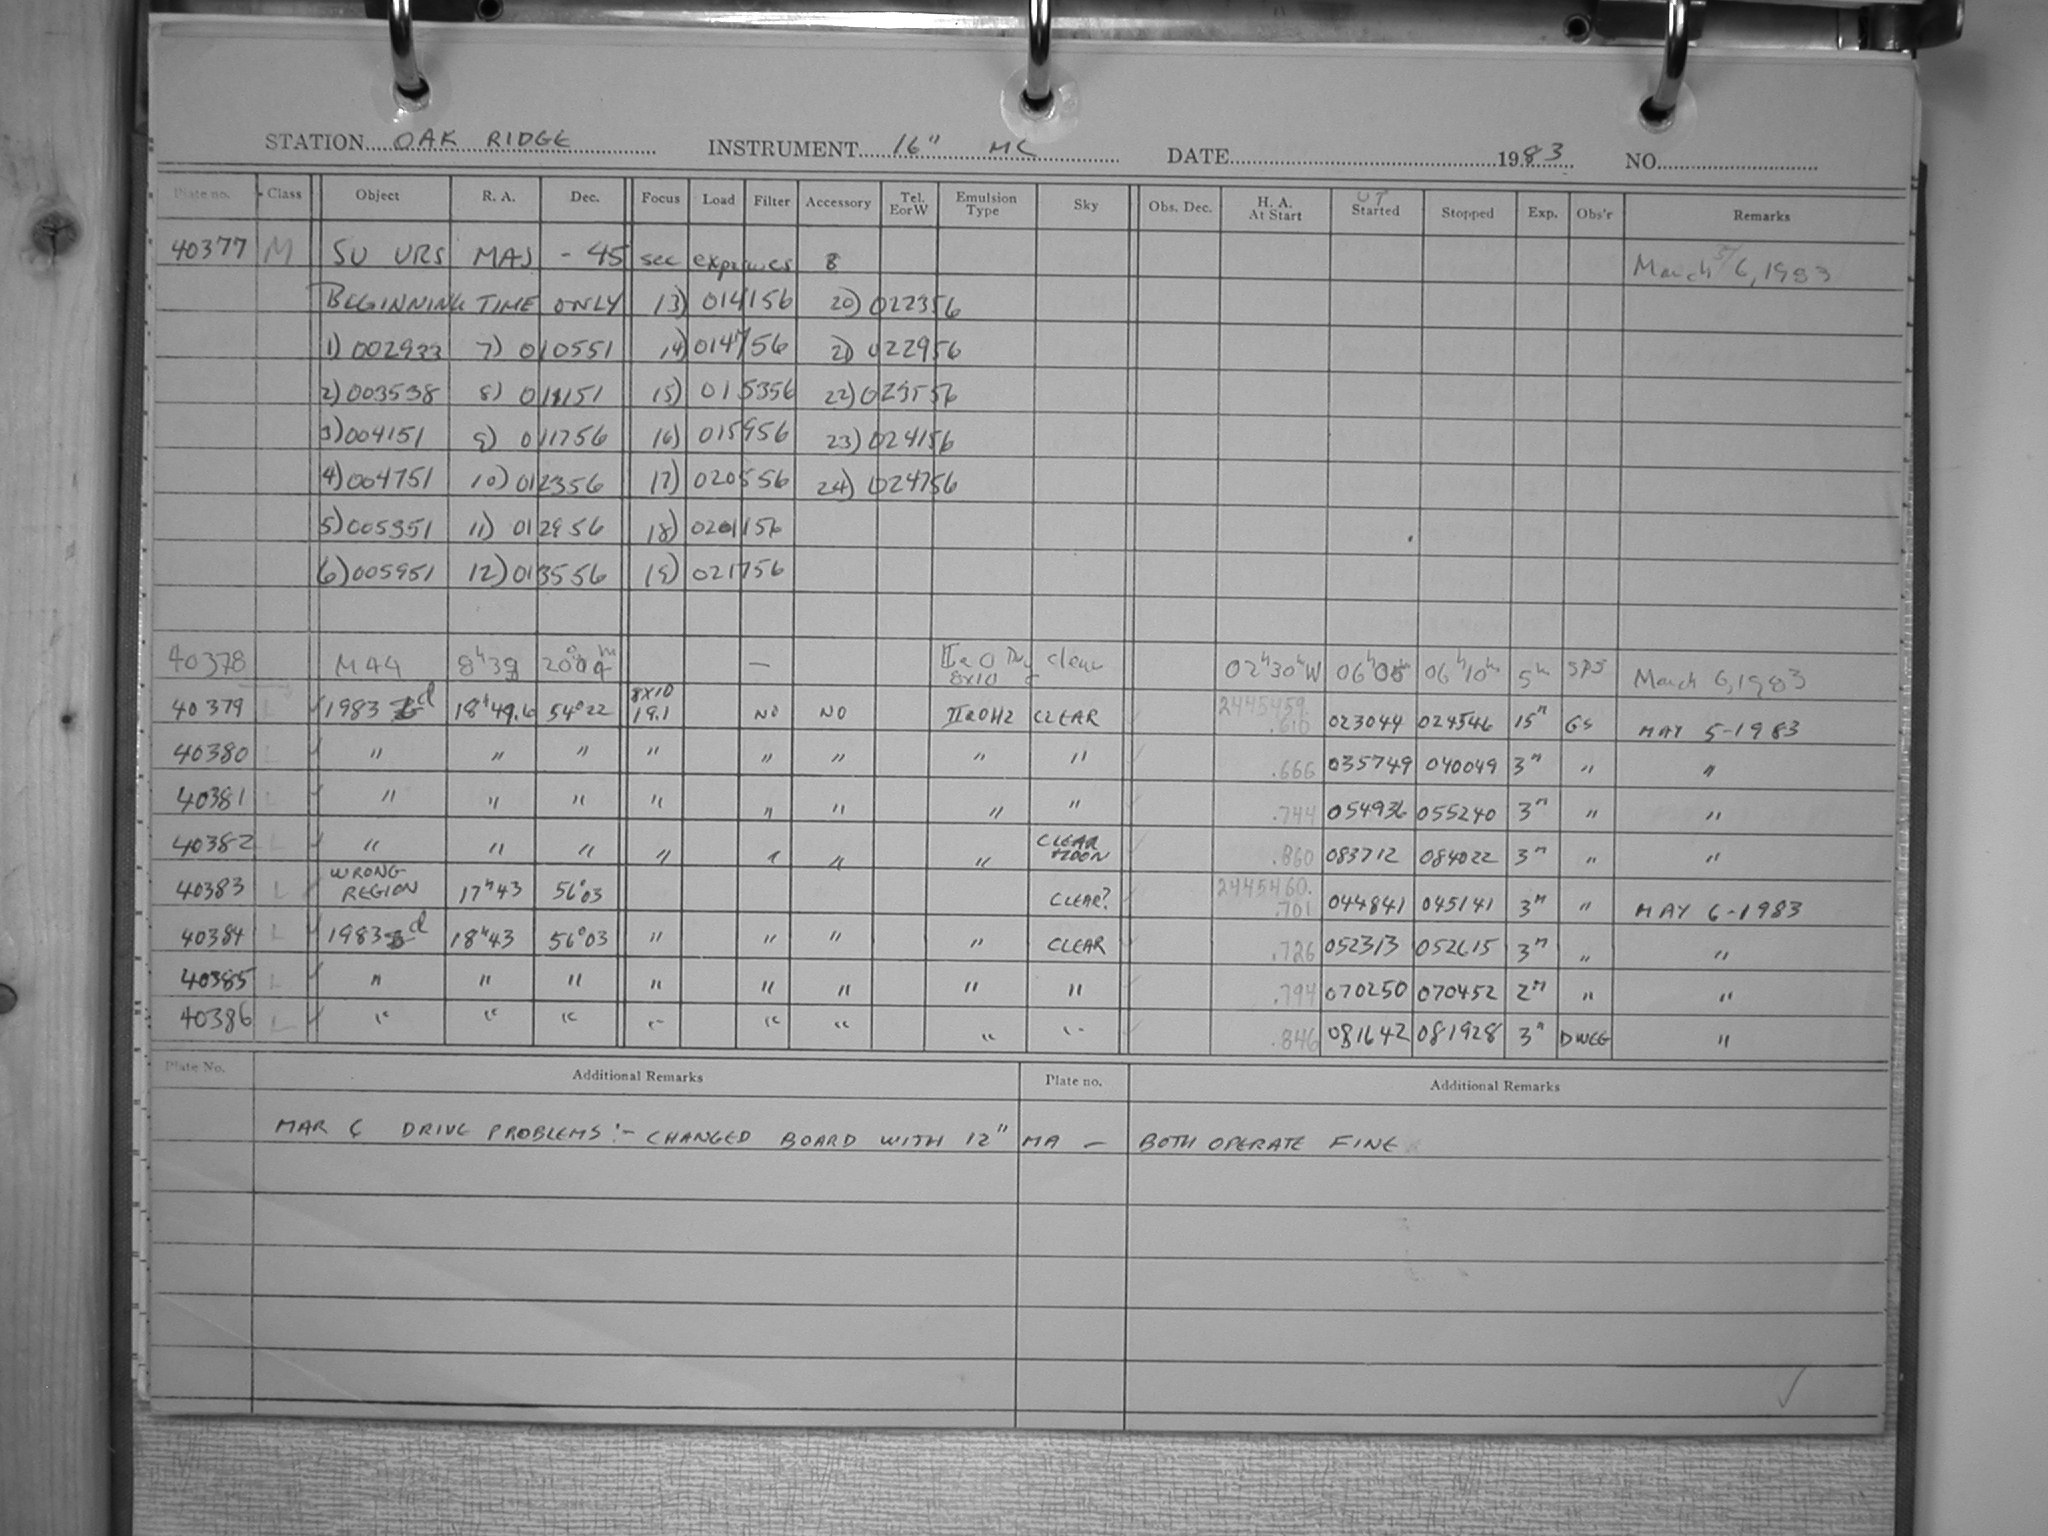 STATION OAK RIDGE INSTRUMENT 16" MC DATE 1983 NO.
Plate no. Class Object R. A. Dec. Focus Load Filter Accessory Tel. E or W Emulsion Type Sky Obs. Dec. H. A. At Start UT Started Stopped Exp. Obs'r Remarks
40377 M SU URS MAJ - 45 sec exposures 8 March 5/6, 1983
BEGINNING TIME ONLY 13) 014156 20) 022356
1) 002933 7) 010551 14) 014756 21) 022956
2) 003538 8) 011151 15) 015356 22) 023556
3) 004151 9) 011756 16) 015956 23) 024156
4) 004751 10) 012356 17) 020556 24) 024756
5) 005351 11) 012956 18) 021156
6) 005951 12) 013556 19) 021756
40378 M44 8h39 20°04m — IIaO Dry 8x10 clear 02h30mW 06h05m 06h10m 5m SPS March 6, 1983
40379 L ✓ 1983 d 18h49.6 54°22 8x10 19.1 NO NO IIaOH2 CLEAR 2445459. .610 023044 024546 15m GS MAY 5-1983
40380 L ✓ " " " " " " " " .666 035749 040049 3m " "
40381 L ✓ " " " " " " " " .744 054936 055240 3m " "
40382 L ✓ " " " " " " " CLEAR MOON .860 083712 084022 3m " "
40383 L ✓ WRONG REGION 17h43 56°03 CLEAR? 2445460. .701 044841 045141 3m " MAY 6-1983
40384 L ✓ 1983 d 18h43 56°03 " " " " CLEAR .726 052313 052615 3m " "
40385 L ✓ " " " " " " " " .794 070250 070452 2m " "
40386 L ✓ " " " " " " " " .846 081642 081928 3m DWEG "
Plate No. Additional Remarks Plate no. Additional Remarks
MAR 6 DRIVE PROBLEMS:- CHANGED BOARD WITH 12" MA — BOTH OPERATE FINE